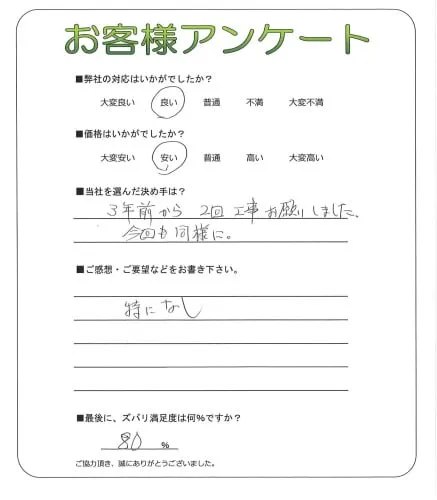 お客様アンケート
■弊社の対応はいかがでしたか？
大変良い 良い 普通 不満 大変不満
■価格はいかがでしたか？
大変安い 安い 普通 高い 大変高い
■当社を選んだ決め手は？
3年前から 2回 工事お願いしました。
今回も同様に。
■ご感想・ご要望などをお書き下さい。
特になし
■最後に、ズバリ満足度は何％ですか？
80 ％
ご協力頂き、誠にありがとうございました。